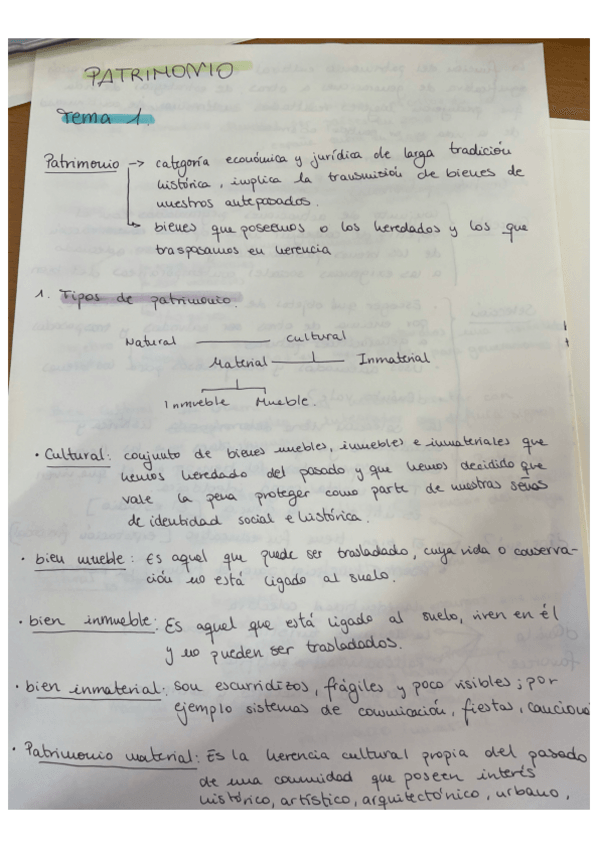 PATRIMONIO
Tema 1.
Patrimonio → categoría económica y jurídica de larga tradición
histórica, implica la transmisión de bienes de
nuestros antepasados.
→ bienes que poseemos o los heredados y los que
traspasamos en herencia
1. Tipos de patrimonio.
Natural — cultural
Material — Inmaterial
Inmueble Mueble.
• Cultural: conjunto de bienes muebles, inmuebles e inmateriales que
hemos heredado del pasado y que hemos decidido que
vale la pena proteger como parte de nuestras señas
de identidad social e histórica.
• bien mueble: Es aquel que puede ser trasladado, cuya vida o conserva-
ción no está ligado al suelo.
• bien inmueble: Es aquel que está ligado al suelo, viven en él
y no pueden ser trasladados.
• bien inmaterial: son escurridizos, frágiles y poco visibles; por
ejemplo sistemas de comunicación, fiestas,
• Patrimonio material: Es la herencia cultural propia del pasado
de una comunidad que poseen interés
histórico, artístico, arquitectónico, urbano,